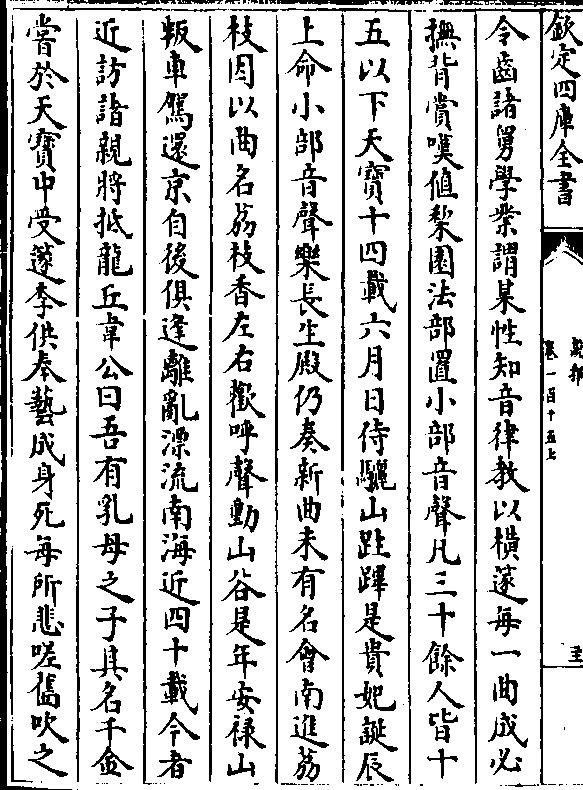 欽定四庫全書
說郛
卷一百十五上
令齒諸舅學業謂某性知音律教以橫篴每一曲成必
撫背賞嘆值棃園法部置小部音聲凡三十餘人皆十
五以下天寶十四載六月日侍驪山跸蹕是貴妃誕辰
上命小部音聲樂長生殿仍奏新曲未有名會南進荔
枝因以曲名荔枝香左右歡呼聲動山谷是年安禄山
叛車駕還京自後俱逢離亂漂流南海近四十載今者
近訪諸親將抵龍丘韋公曰吾有乳母之子其名千金
嘗於天寶中受篴李供奉藝成身死每所悲嗟舊吹之